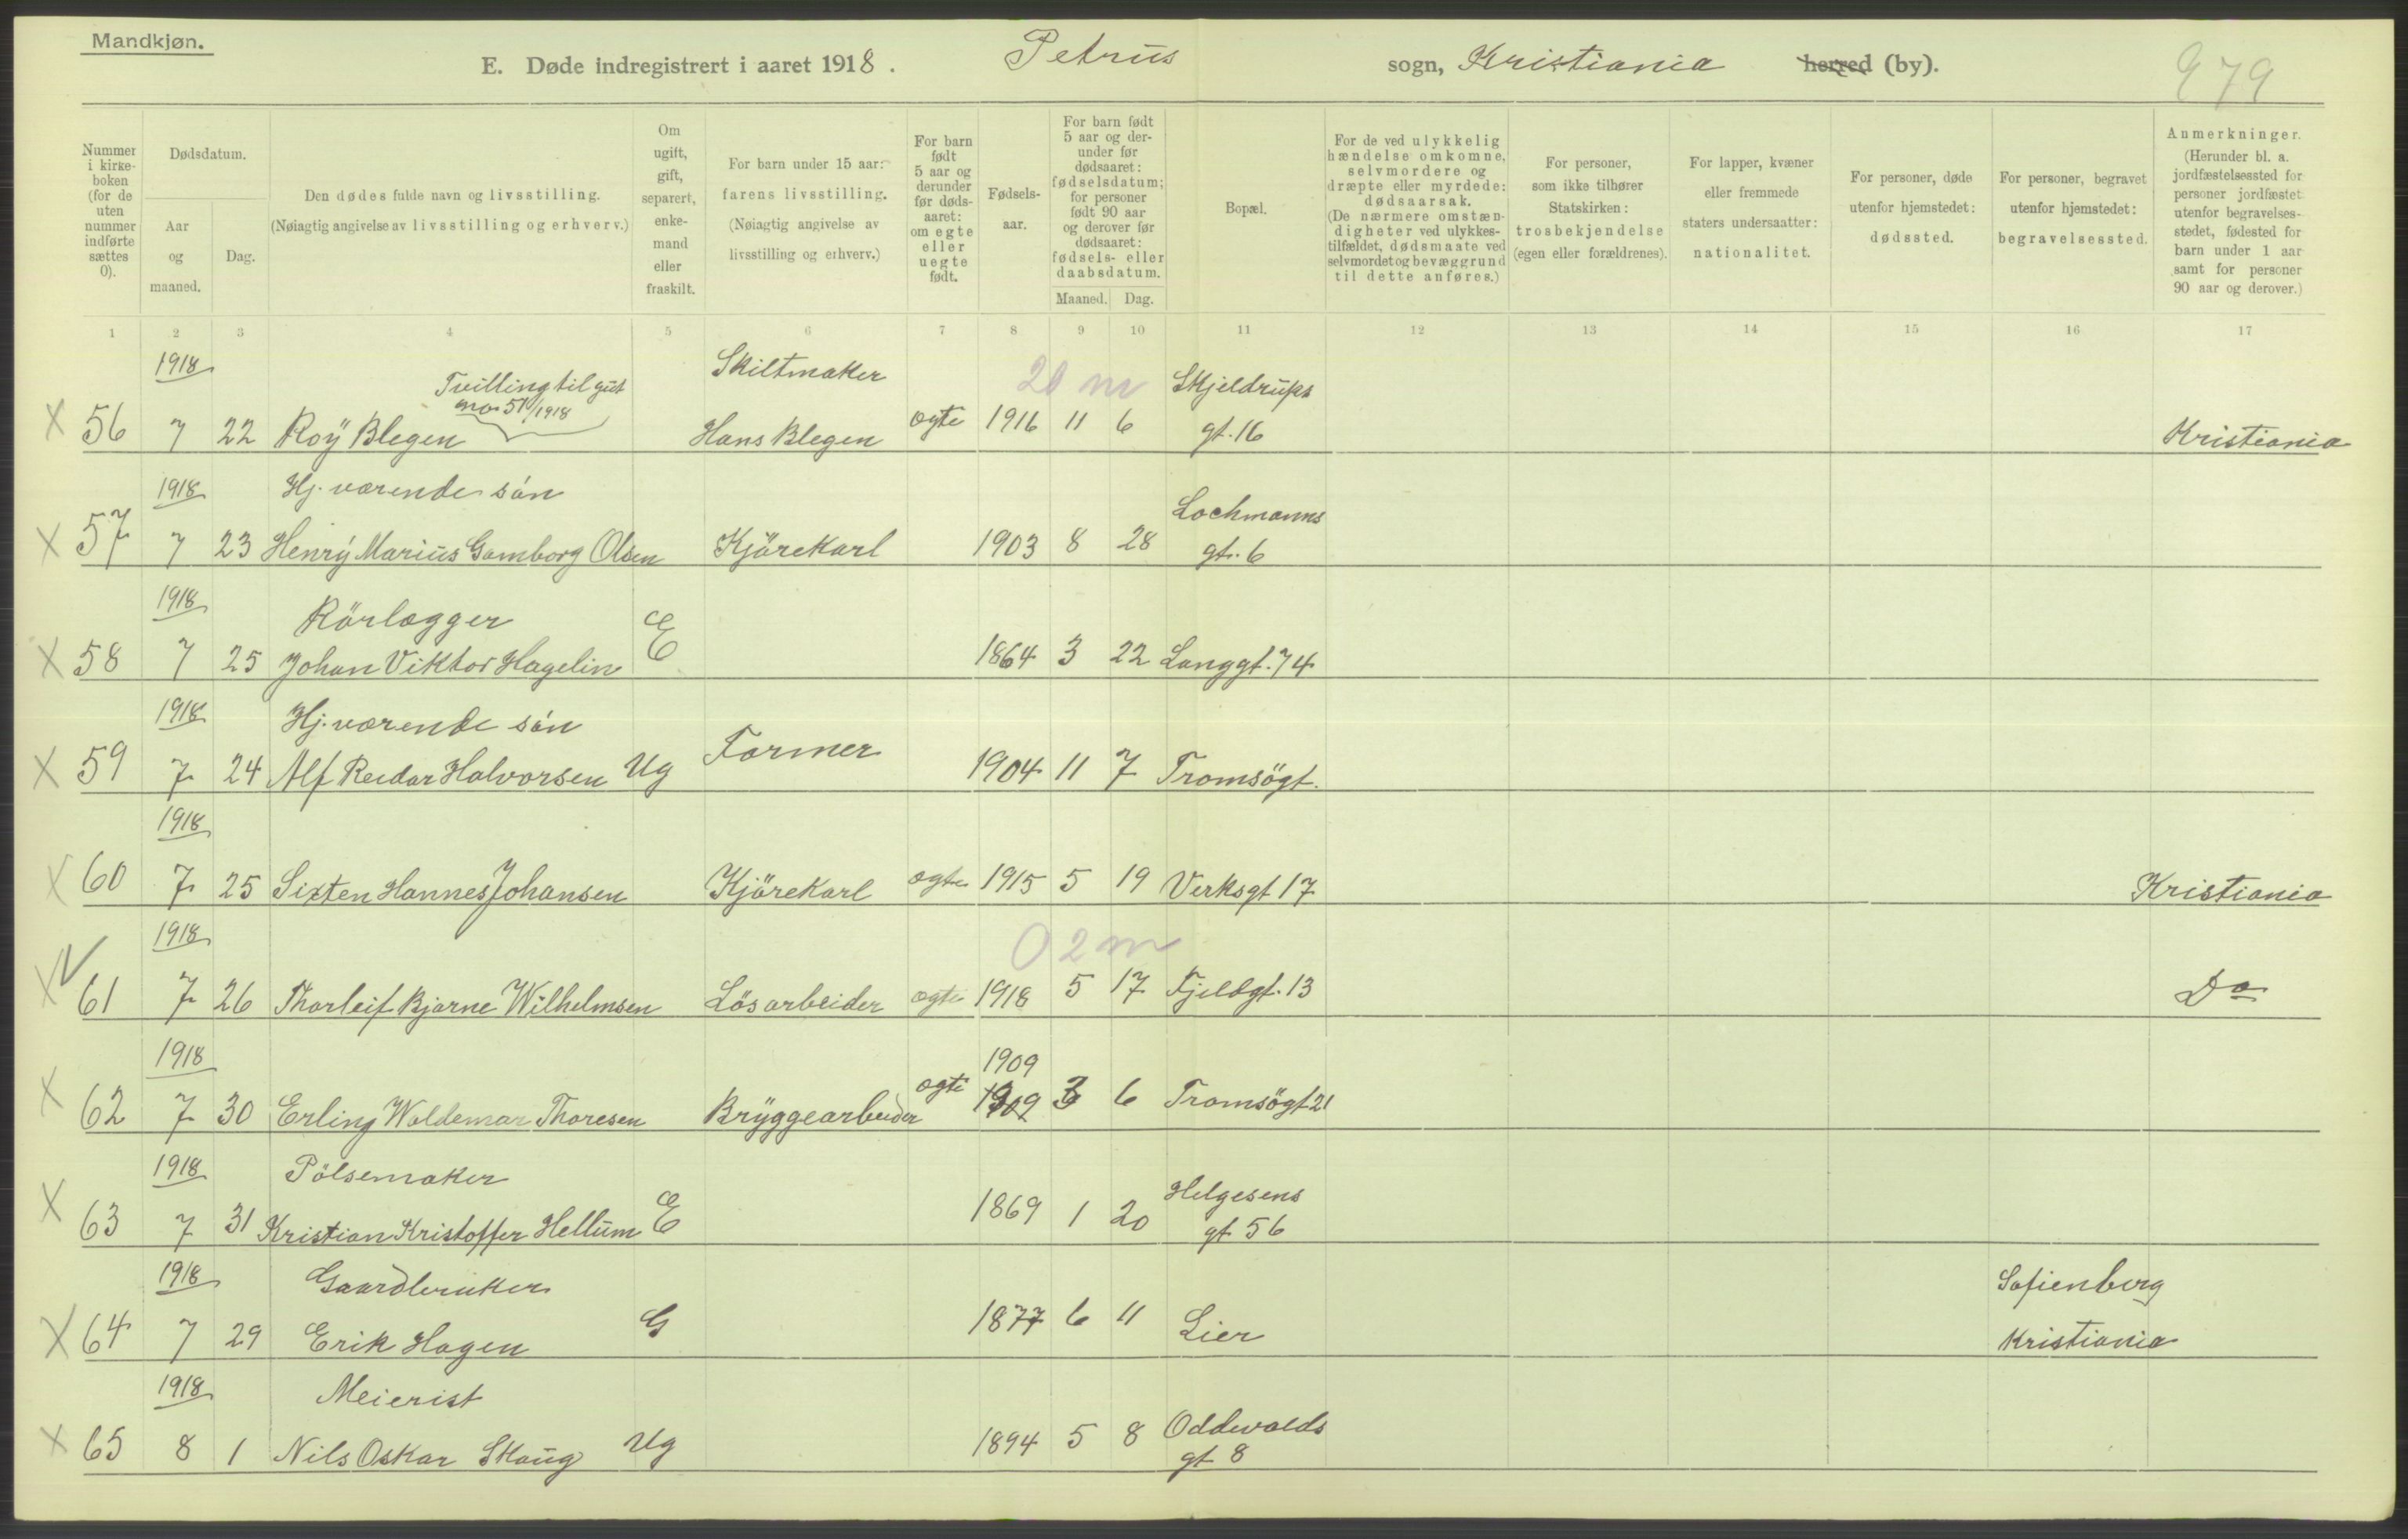 Mandkjøn.
E. Døde indregistrert i aaret 1918. Petrus sogn, Kristiania herred (by). 979
Nummer i kirkeboken (for de uten nummer indførte sættes 0).
Dødsdatum.
Aar og maaned.
Dag.
Den dødes fulde navn og livsstilling.
(Nøiagtig angivelse av livsstilling og erhverv.)
Om ugift, gift, separert, enkemand eller fraskilt.
For barn under 15 aar: farens livsstilling. (Nøiagtig angivelse av livsstilling og erhverv.)
For barn født 5 aar og derunder før dødsaaret: om egte eller uegte født.
Fødselsaar.
For barn født 5 aar og derunder før dødsaaret: fødselsdatum; for personer født 90 aar og derover før dødsaaret: fødsels- eller daabsdatum.
Maaned. Dag.
Bopæl.
For de ved ulykkelig hændelse omkomne, selvmordere og dræpte eller myrdede: dødsaarsak. (De nærmere omstændigheter ved ulykkestilfældet, dødsmaate ved selvmordet og bevæggrund til dette anføres.)
For personer, som ikke tilhører Statskirken: trosbekjendelse (egen eller forældrenes).
For lapper, kvæner eller fremmede staters undersaatter: nationalitet.
For personer, døde utenfor hjemstedet: dødssted.
For personer, begravet utenfor hjemstedet: begravelsessted.
Anmerkninger. (Herunder bl. a. jordfæstelsessted for personer jordfæstet utenfor begravelsesstedet, fødested for barn under 1 aar samt for personer 90 aar og derover.)
1 2 3 4 5 6 7 8 9 10 11 12 13 14 15 16 17
1918 Tvilling til gut Skiltmaker 20 m Skjeldrups
no 51/1918
X 56 7 22 Roÿ Blegen Hans Blegen ogte 1916 11 6 gt. 16 Kristiania
1918 Hj. værende sön Lochmanns
X 57 7 23 Henrÿ Marius Gamborg Olsen Kjörekarl 1903 8 28 gt. 6
1918 Rörlægger
X 58 7 25 Johan Viktor Hagelin E 1864 3 22 Langgt. 74
1918 Hj. værende sön Former
X 59 7 24 Alf Reidar Halvorsen Ug 1904 11 7 Tromsögt.
1918
X 60 7 25 Sixten Hannes Johansen Kjörekarl ogte 1915 5 19 Verksgt 17 Kristiania
1918 0 2 m
X V 61 7 26 Thorleif Bjarne Wilhelmsen Lösarbeider ogte 1918 5 17 Fjeldgt. 13 Do
1918 1909
X 62 7 30 Erling Woldemar Thoresen Brÿggearbeider ogte 1909 3 6 Tromsögt 21
1918 Pölsemaker Helgesens
X 63 7 31 Kristian Kristoffer Hellum E 1869 1 20 gt 56
1918 Gaardbruker Sofienberg
X 64 7 29 Erik Hagen G 1877 6 11 Lier Kristiania
1918 Meierist Oddwalds
X 65 8 1 Nils Oskar Skaug Ug 1894 5 8 gt 8